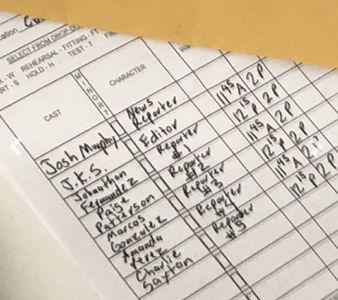 SELECT FROM DROP DO
K - W REHEARSAL - FITTING - FT
RT - S HOLD - H TEST - T
CAST MINOR? CHARACTER
Josh Murphy News Reporter 11:45A 2P
J.K.S. Editor 12:15P 2P
Johnathon Fernandez Reporter #1 11:45A 2P
Paige Patterson Reporter #2 12:15P 2P
Marcos Gonzulez Reporter #3 11:45A 2P
Amanda Perez Reporter 12:15P 2P
Charlie Saxton Reporter #5